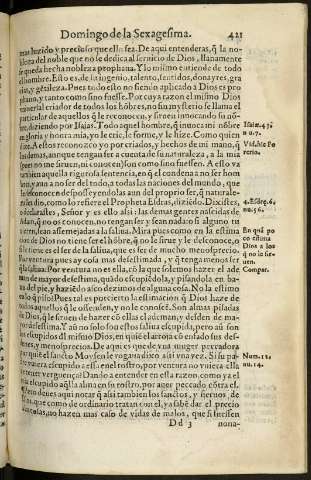 Domingo de la Sexagesima. 421
mas luzido y precioso que ello sea. De aqui entenderas, q̃ la no-
bleza del noble que no se dedica al seruicio de Dios, llanamente
se queda hecha nobleza prophana. Y lo mismo entiende de todo
el hombre. Esto es, de su ingenio, talento, sentidos, donayres, gra
cias, y gẽtileza. Pues todo esto no siendo aplicado a Dios es pro
phano, y tanto como sino fuesse. Por cuya razon el mismo Dios
vniuersal criador de todos los hõbres, no sin mysterio se llama el
particular de aquellos q̃ le reconocen, y siruen inuocando su nõ-
bre, diziendo por Isaias. Todo aquel hombre, q̃ inuoca mi nõbre
en gloria y honrra mia, yo le crie, le forme, y le hize. Como quien
dize. A estos reconozco yo por criados, y hechos de mi mano, q̃
las demas, aunque tengan ser a cuenta de su naturaleza, a la mia
(pues no me siruen, ni conocen) son como sino fuessen. A esto va
tambien aquella rigurosa sentencia, en q̃ el
no ser del todo, a todas las naciones del mundo, que
dio, como lo refiere el Propheta Esdras, diziẽdo. Dixistes,
o declarastes, Señor y es ello assi: las demas gentes nascidas de
Adam, q̃ no os conocen, no tengan ser y sean nada: o si alguno tu
uieren, sean assemejadas a la saliua. Mira pues como en la estima
cion de Dios no tiene ser el hõbre, q̃ no le sirue y le desconoce, o
si le tiene es el ser de la saliua, que es ser de mucho menosprecio.
Por ventura pues ay cosa mas desestimada, y q̃ tenga menos ser
q̃ la saliua? Por ventura no es ella, cõ la que solemos hazer el ade
man de mayor desestima, quãdo escupiẽdola, y pisandola en ba-
xa del pie, y haziẽdo asco dezimos de alguna cosa. No la estimo
en lo q̃ piso? Pues tal es por cierto la estimacion q̃ Dios haze de
todos aquellos q̃ le offenden, y no le conoscẽ. Son almas pisadas
de Dios, q̃ le siruen de hazer cõ ellas el ademan, y desden de ma-
yor desestima. Y aũ no solo son estos saliua escupida, pero aũ son
escupidos del mismo Dios, en quiẽ el arroja cõ enfado sus desde-
denes, y menosprecios. De aqui es que de vna muger perradora
por quiẽ el sancto Moysen le rogaua dixo assi vna vez. Si su pa-
dre vuiera escupido a essa en el rostro, por ventura no vuiera ella
de tener verguença? Dando a entender en essa razon, como ya el
auia escupido aq̃lla alma en su rostro, por auer peccado cõtra el.
Pero deues aqui notar q̃ assi tambien los sanctos, y sieruos de
Dios, que como de ordinario tratan con el, ya sabẽ dar el precio
a las cosas, no hazen mas caso de vidas de malos, que si fuessen
Dd 3 nona-
Isaiæ. 43.
nu. 7.
4. Esdræ. 6.
nu. 56.
En quã po
co estima
Dios a los
q̃ no le sir-
uen.
Compar.
Num. 12.
nu. 14.